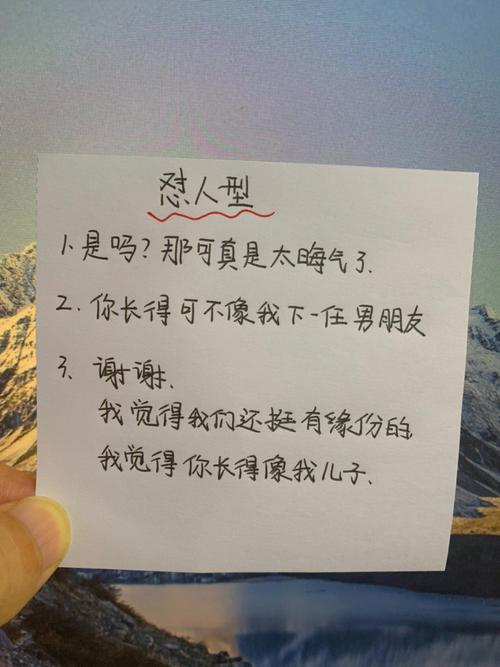 怼人型
1.是吗?那可真是太晦气了.
2.你长得可不像我下一任男朋友
3、谢谢.
我觉得我们还挺有缘份的,
我觉得你长得像我儿子.